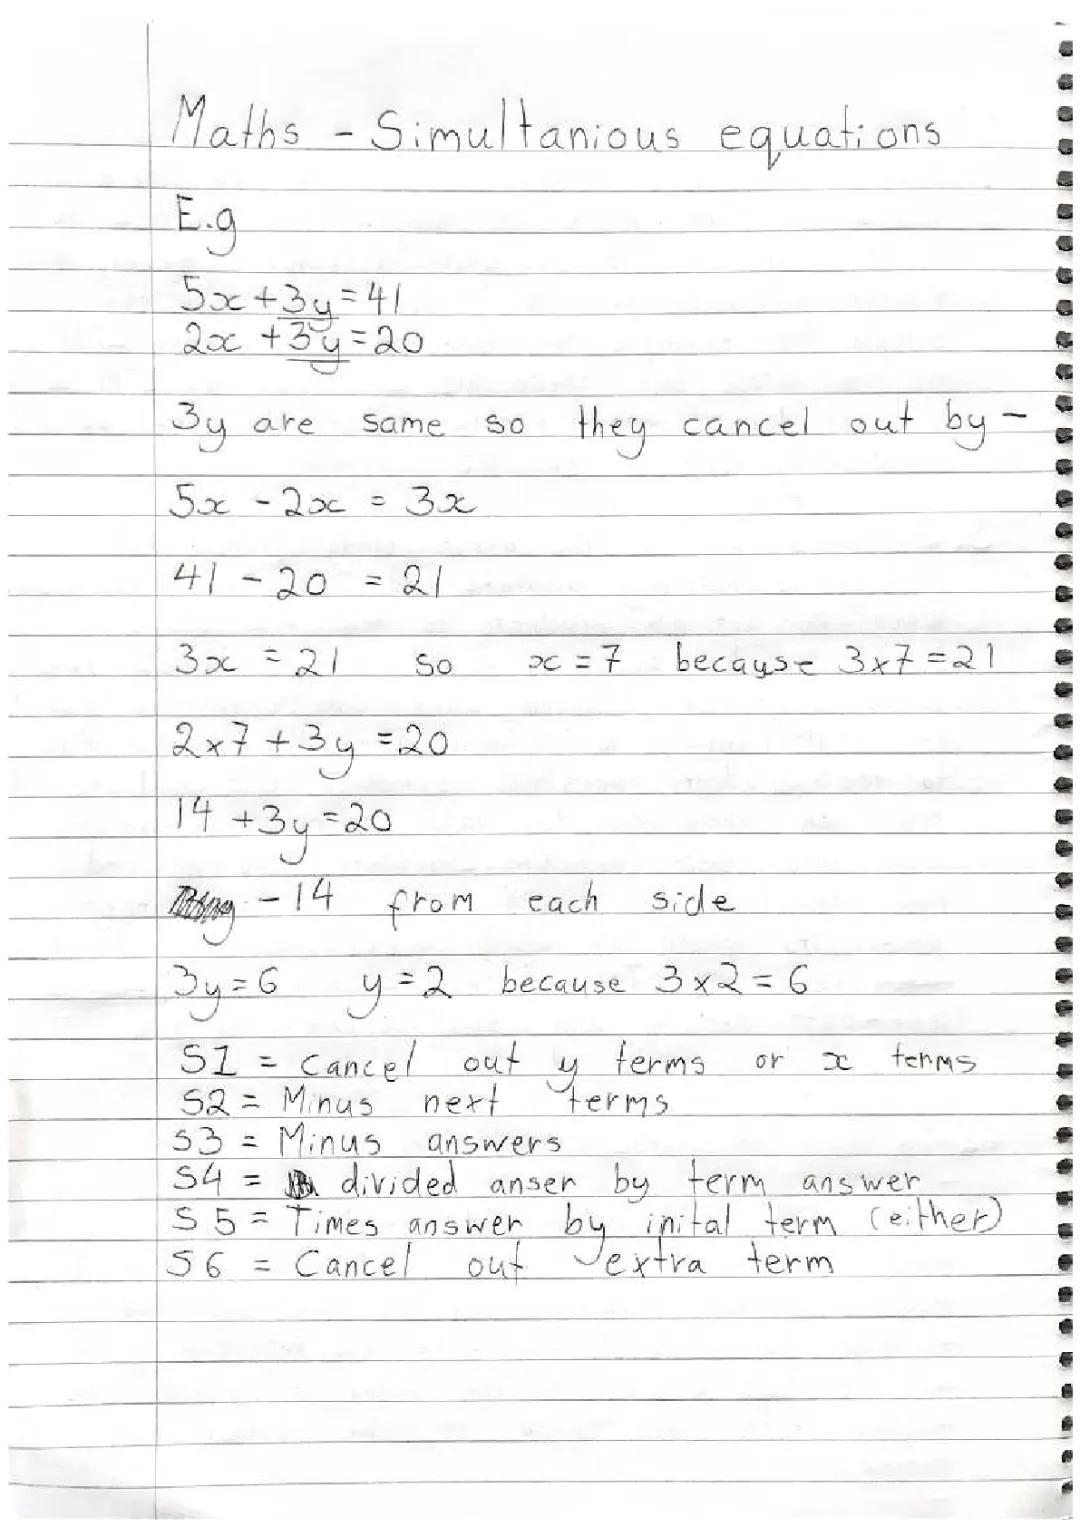 Maths - Simultanious equations
E.g
5x+3y=41
2x +3y=20
3y are same so they cancel out by -
5x - 2x = 3x
41 - 20 = 21
3x = 21 so x = 7 because 3x7=21
2x7 +3y =20
14 +3y=20
-14 from each side
3y=6 y=2 because 3x2=6
S1 = Cancel out y terms or x terms
S2 = Minus next terms
S3 = Minus answers
S4 = divided anser by term answer
S5 = Times answer by inital term (either)
S6 = Cancel out extra term